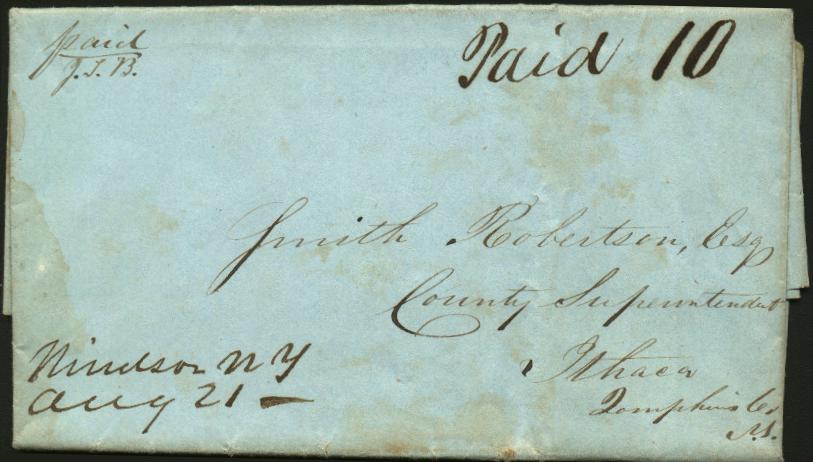 paid
J.T.B.
Paid 10
Smith Robertson, Esq
County Superintendent
Ithaca
Tompkins Co.
N.Y.
Windsor N Y
Aug 21 —